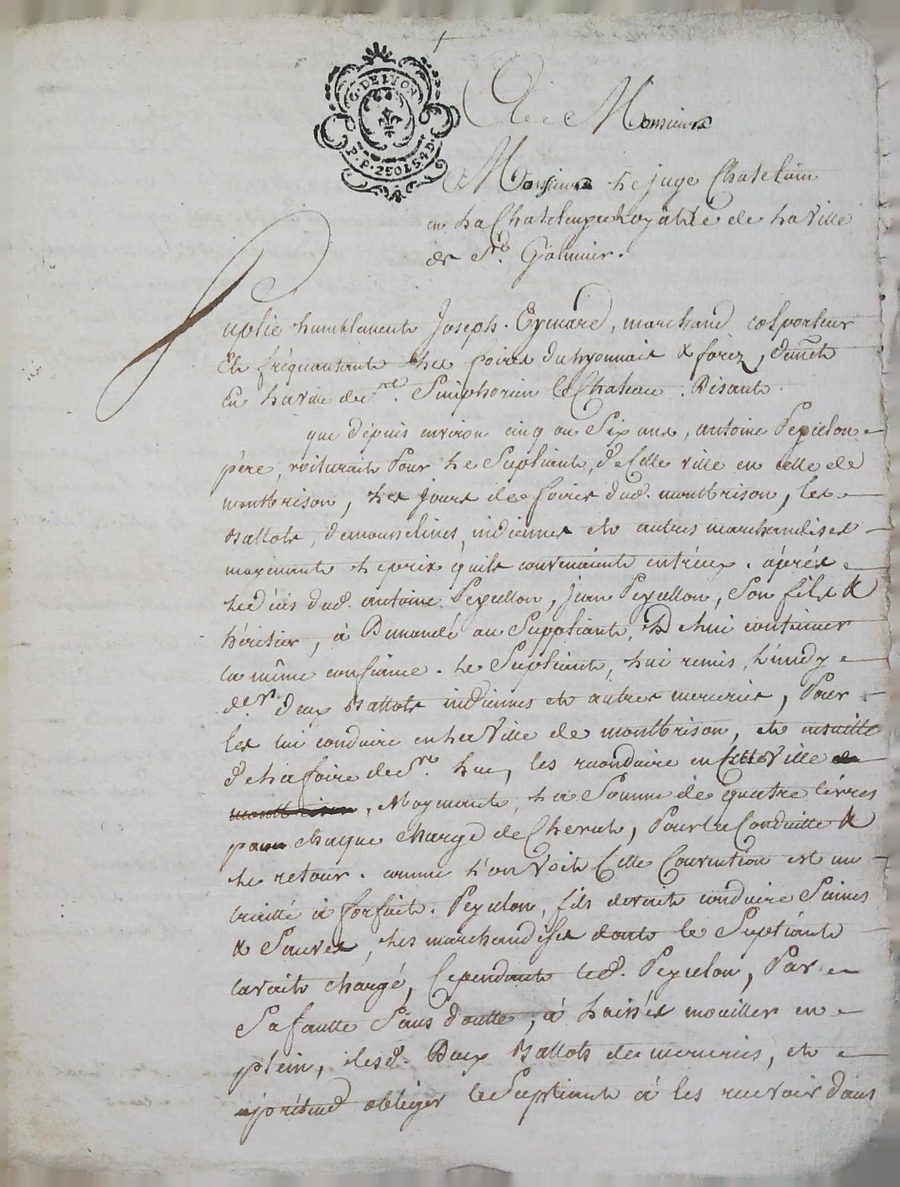 G. DE LYON
P.P. 2 SOLS 4 D.
A Monsieur
Monsieur Le juge Chatelain
en La Chatelenye Royalle de La ville
de St. Galmier.
Suplie humblement Joseph Eymard, marchand colporteur
Et fréquantant Les foires du Lyonnait & forez, demt
En La ville de St. Simphorien Le Chateau. Disant.
que dépuis environ cinq ou Six ans, antoine Peyellon
père, voiturait pour Le Supliant, de Cette ville en celle de
montbrison, Les jours de foires dud. montbrison, Les
Ballots, de mousselines, indiennes et autres marchandises
moyenant Le prix qu'ils convenaient entr'eux. àprés
Le décés dud. antoine Peyellon, jean Peyellon, Son fils &
héritier, à Demandé au Suppliant, de Lui continuer
la même confiance. Le Supliant, Lui remis, Lundy
der. deux Ballots indiennes et autres merceries, pour
Les lui conduire en La Ville de montbrison, et ensuitte
de La foire de St. Luc, les reconduire en Cette Ville
, Moyenant La Somme de quatre Livres
pour chaque charge de Cheval, pour La Conduitte &
Le retour. comme L'on voit Cette Convention est un
traitté à forfait. Peyellon, fils devait conduire Saines
& Sauves, Les marchandises dont Le Supliant
L'avait chargé, Cependant led. Peyellon, Par
Sa fautte Sans doutte, à Laissés mouiller en
plein, Lesd. Deux Ballots de merceries, et
prétend obliger Le Supliant à les recevoir dans